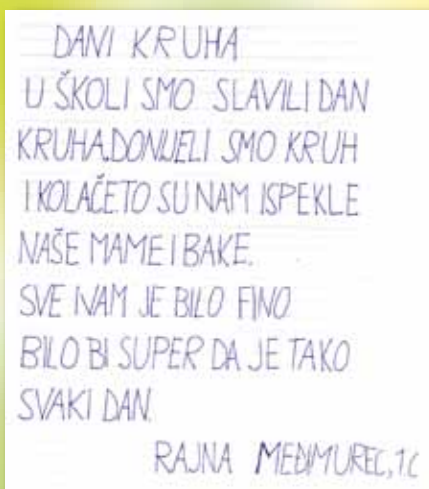 DANI KRUHA
U ŠKOLI SMO SLAVILI DAN
KRUHA.DONIJELI SMO KRUH
I KOLAČE.TO SU NAM ISPEKLE
NAŠE MAME I BAKE.
SVE NAM JE BILO FINO.
BILO BI SUPER DA JE TAKO
SVAKI DAN.
RAJNA MEĐIMUREC, 1.C